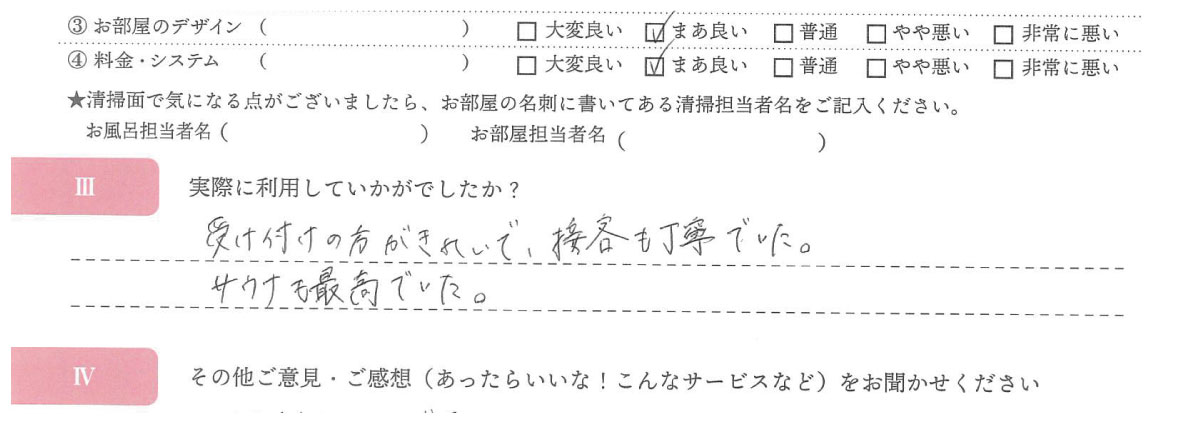 ③ お部屋のデザイン （ ） □ 大変良い ☑ まあ良い □ 普通 □ やや悪い □ 非常に悪い
④ 料金・システム （ ） □ 大変良い ☑ まあ良い □ 普通 □ やや悪い □ 非常に悪い
★清掃面で気になる点がございましたら、お部屋の名刺に書いてある清掃担当者名をご記入ください。
お風呂担当者名（ ） お部屋担当者名（ ）
Ⅲ 実際に利用していかがでしたか？
受け付けの方がきれいで、接客も丁寧でした。
サウナも最高でした。
Ⅳ その他ご意見・ご感想（あったらいいな！こんなサービスなど）をお聞かせください